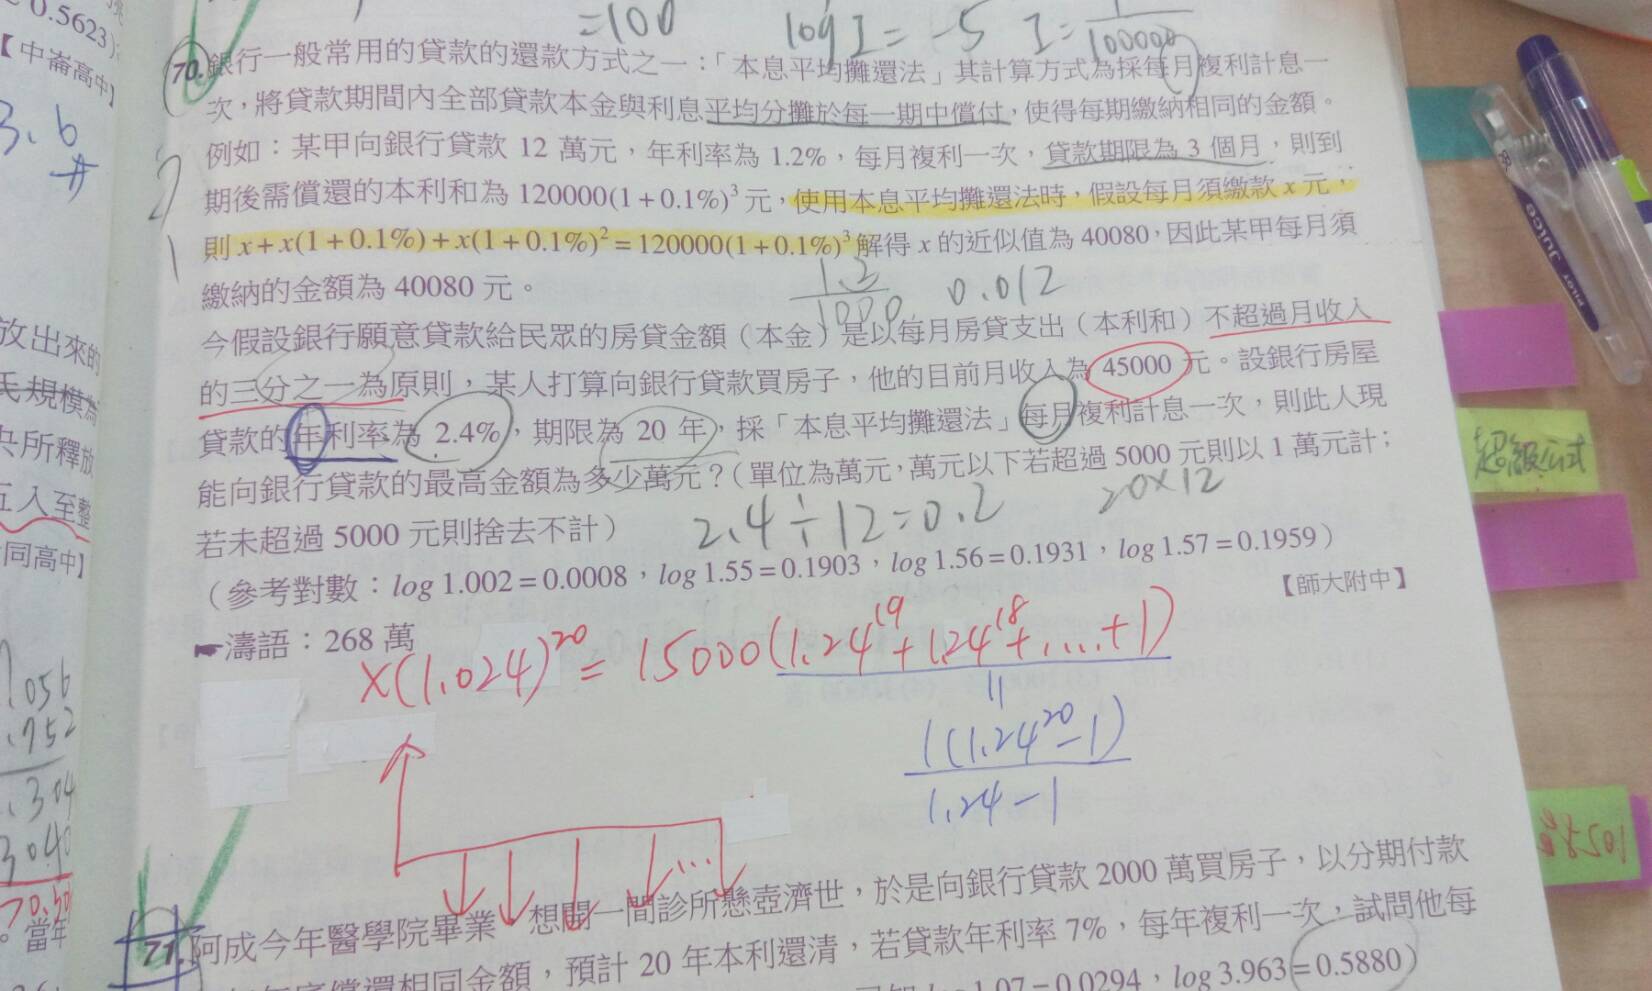 0.5623)
【中崙高中】
3.6
#
=100 log I = -5 I = 1/100000
70. 銀行一般常用的貸款的還款方式之一：「本息平均攤還法」其計算方式為採每月複利計息一
次，將貸款期間內全部貸款本金與利息平均分攤於每一期中償付，使得每期繳納相同的金額。
例如：某甲向銀行貸款 12 萬元，年利率為 1.2%，每月複利一次，貸款期限為 3 個月，則到
期後需償還的本利和為 120000(1+0.1%)³ 元，使用本息平均攤還法時，假設每月須繳款 x 元，
則 x+x(1+0.1%)+x(1+0.1%)²=120000(1+0.1%)³ 解得 x 的近似值為 40080，因此某甲每月須
繳納的金額為 40080 元。
1.2/1000 0.012
今假設銀行願意貸款給民眾的房貸金額（本金）是以每月房貸支出（本利和）不超過月收入
的三分之一為原則，某人打算向銀行貸款買房子，他的目前月收入為 45000 元。設銀行房屋
貸款的年利率為 2.4%，期限為 20 年，採「本息平均攤還法」每月複利計息一次，則此人現
能向銀行貸款的最高金額為多少萬元？（單位為萬元，萬元以下若超過 5000 元則以 1 萬元計；
若未超過 5000 元則捨去不計）
2.4÷12=0.2 20×12
（參考對數：log 1.002=0.0008，log 1.55=0.1903，log 1.56=0.1931，log 1.57=0.1959）
【師大附中】
☛濤語：268 萬
x(1.024)²⁰ = 15000(1.24¹⁹+1.24¹⁸+....+1)
=
1(1.24²⁰-1)
1.24-1
...
71. 阿成今年醫學院畢業，想開一間診所懸壺濟世，於是向銀行貸款 2000 萬買房子，以分期付款
償還相同金額，預計 20 年本利還清，若貸款年利率 7%，每年複利一次，試問他每
log 1.07=0.0294，log 3.963=0.5880）
放出來的
氏規模為
央所釋放
五入至整
同高中】
.056
.752
.304
3040
70.50
。當年
超級公式
PILOT Juice